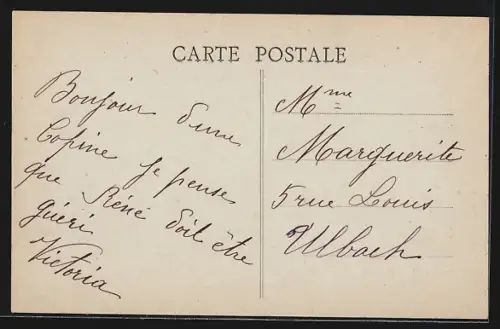 CARTE POSTALE
Bonjour d'une
Copine je pense
que Réné doit être
guéri
Victoria
Mme
Marguerite
5 rue Louis
Ulbach